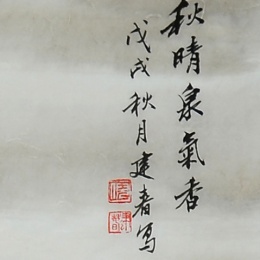 秋晴泉氣香
戊戌秋月建春写